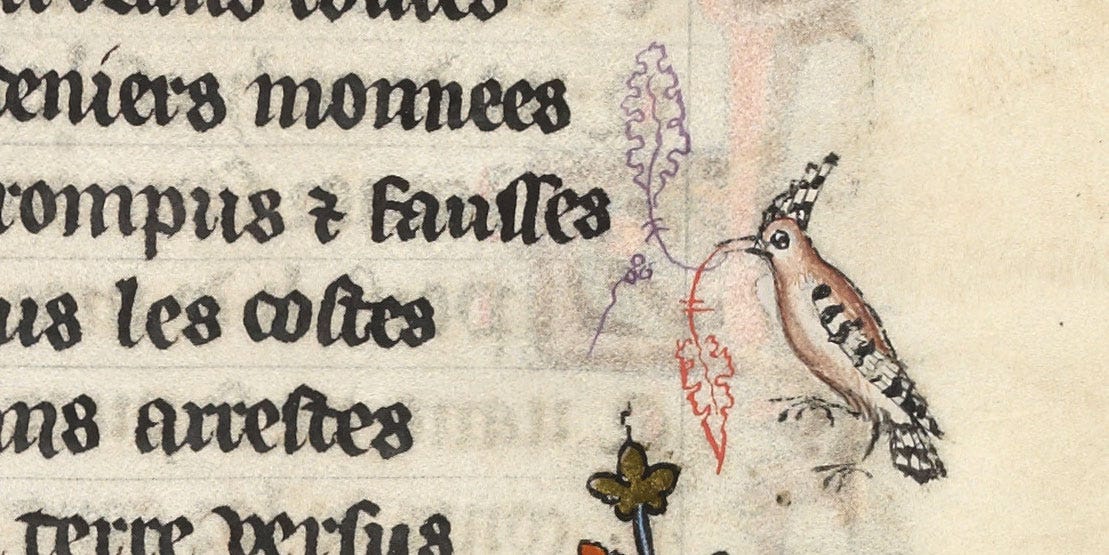 deniers monnees
rompus ⁊ fausses
us les costes
ns arrestes
terre versus